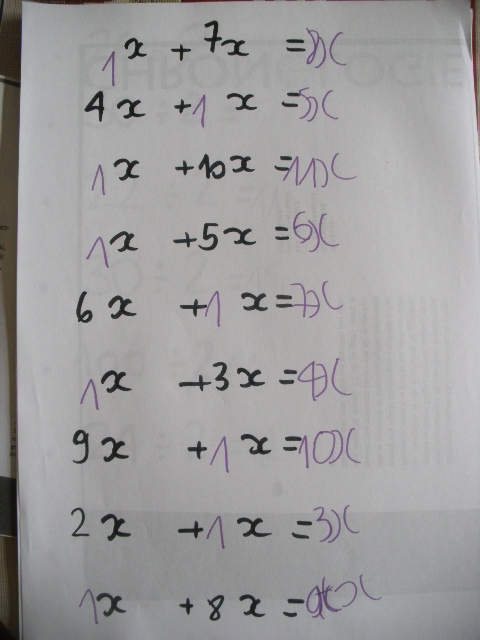 1x + 7x = 8x
4x + 1x = 5x
1x + 10x = 11x
1x + 5x = 6x
6x + 1x = 7x
1x + 3x = 4x
9x + 1x = 10x
2x + 1x = 3x
1x + 8x =